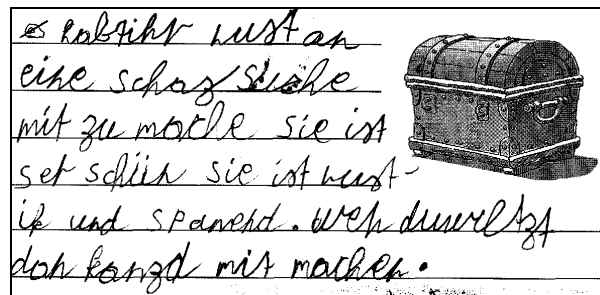 habtihr lust an
eine schaz suche
mit zu mache sie ist
set schün sie ist lust-
ik und spanend. wen duweltzt
dan kanzd mit machen.